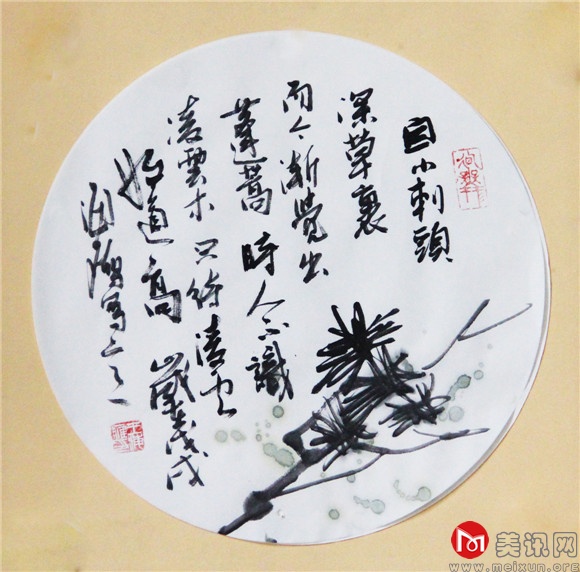 自小刺頭
深草裏
而今漸覺出
蓬蒿 時人不識
凌雲木 只待凌云
始道高 歲戊戌
美讯网
www.meixun.org